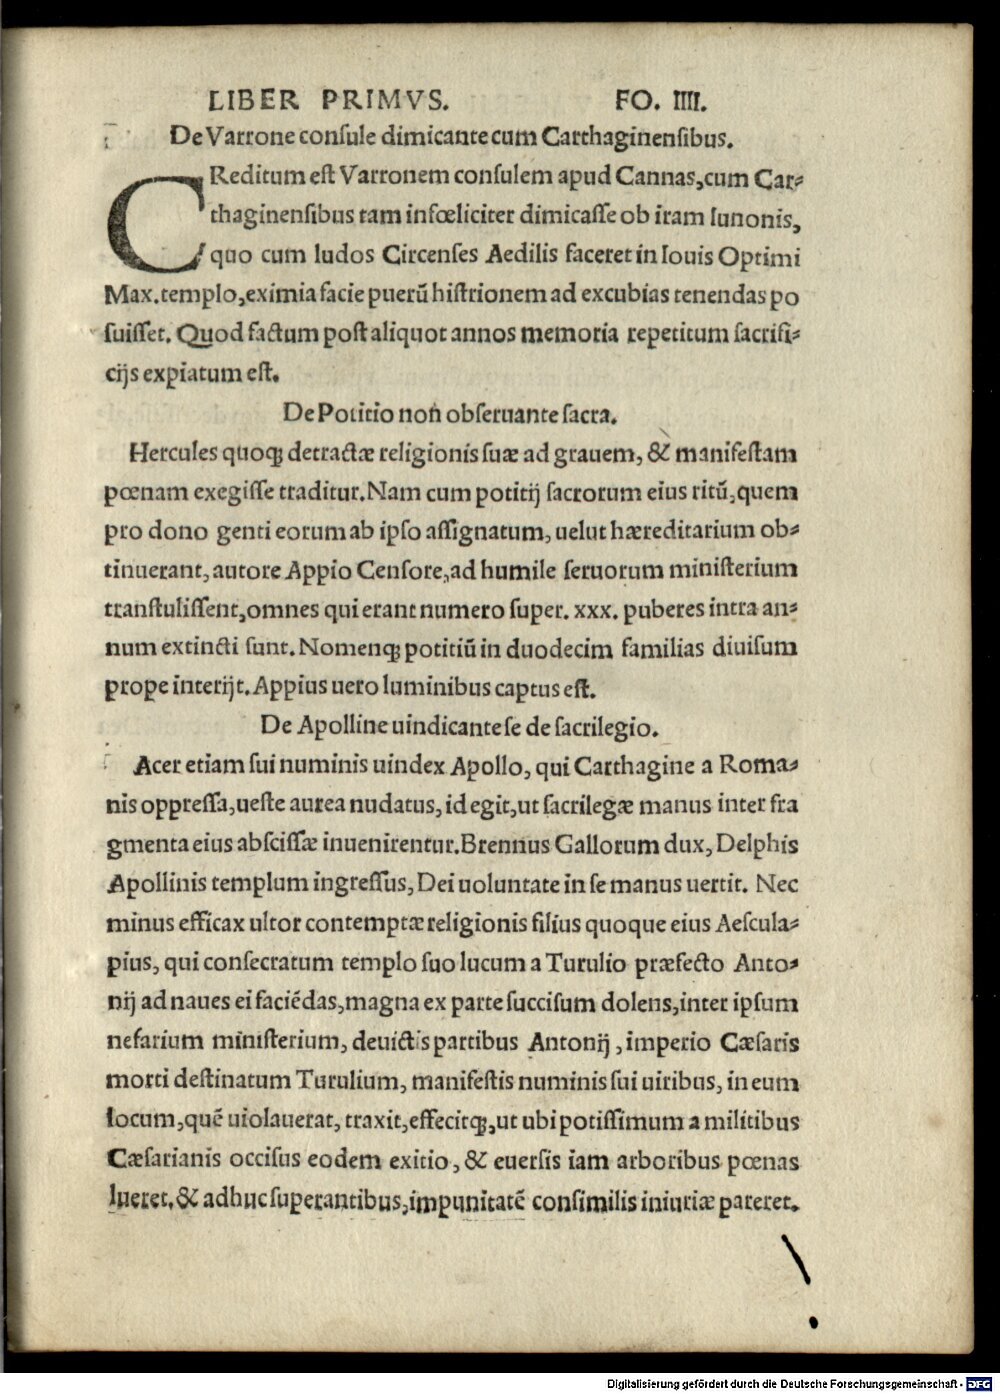 LIBER PRIMVS. FO. IIII.
De Varrone consule dimicante cum Carthaginensibus.
CReditum est Varronem consulem apud Cannas, cum Car-
thaginensibus tam infœliciter dimicasse ob iram Iunonis,
quo cum ludos Circenses Aedilis faceret in Iouis Optimi
Max. templo, eximia facie puerũ histrionem ad excubias tenendas po
suisset. Quod factum post aliquot annos memoria repetitum sacrifi-
cijs expiatum est.
De Potitio non obseruante sacra.
Hercules quoq; detractæ religionis suæ ad grauem, & manifestam
pœnam exegisse traditur. Nam cum potitij sacrorum eius ritũ, quem
pro dono genti eorum ab ipso assignatum, uelut hæreditarium ob-
tinuerant, autore Appio Censore, ad humile seruorum ministerium
transtulissent, omnes qui erant numero super. xxx. puberes intra an-
num extincti sunt. Nomenq; potitiũ in duodecim familias diuisum
prope interijt. Appius uero luminibus captus est.
De Apolline uindicante se de sacrilegio.
Acer etiam sui numinis uindex Apollo, qui Carthagine a Roma-
nis oppressa, ueste aurea nudatus, id egit, ut sacrilegæ manus inter fra
gmenta eius abscissæ inuenirentur. Brennus Gallorum dux, Delphis
Apollinis templum ingressus, Dei uoluntate in se manus uertit. Nec
minus efficax ultor contemptæ religionis filius quoque eius Aescula-
pius, qui consecratum templo suo lucum a Turulio præfecto Anto-
nij ad naues ei faciẽdas, magna ex parte succisum dolens, inter ipsum
nefarium ministerium, deuictis partibus Antonij, imperio Cæsaris
morti destinatum Turulium, manifestis numinis sui uiribus, in eum
locum, quẽ uiolauerat, traxit, effecitq;, ut ubi potissimum a militibus
Cæsarianis occisus eodem exitio, & euersis iam arboribus pœnas
lueret, & adhuc superantibus, impunitatẽ consimilis iniuriæ pareret.
Digitalisierung gefördert durch die Deutsche Forschungsgemeinschaft - DFG